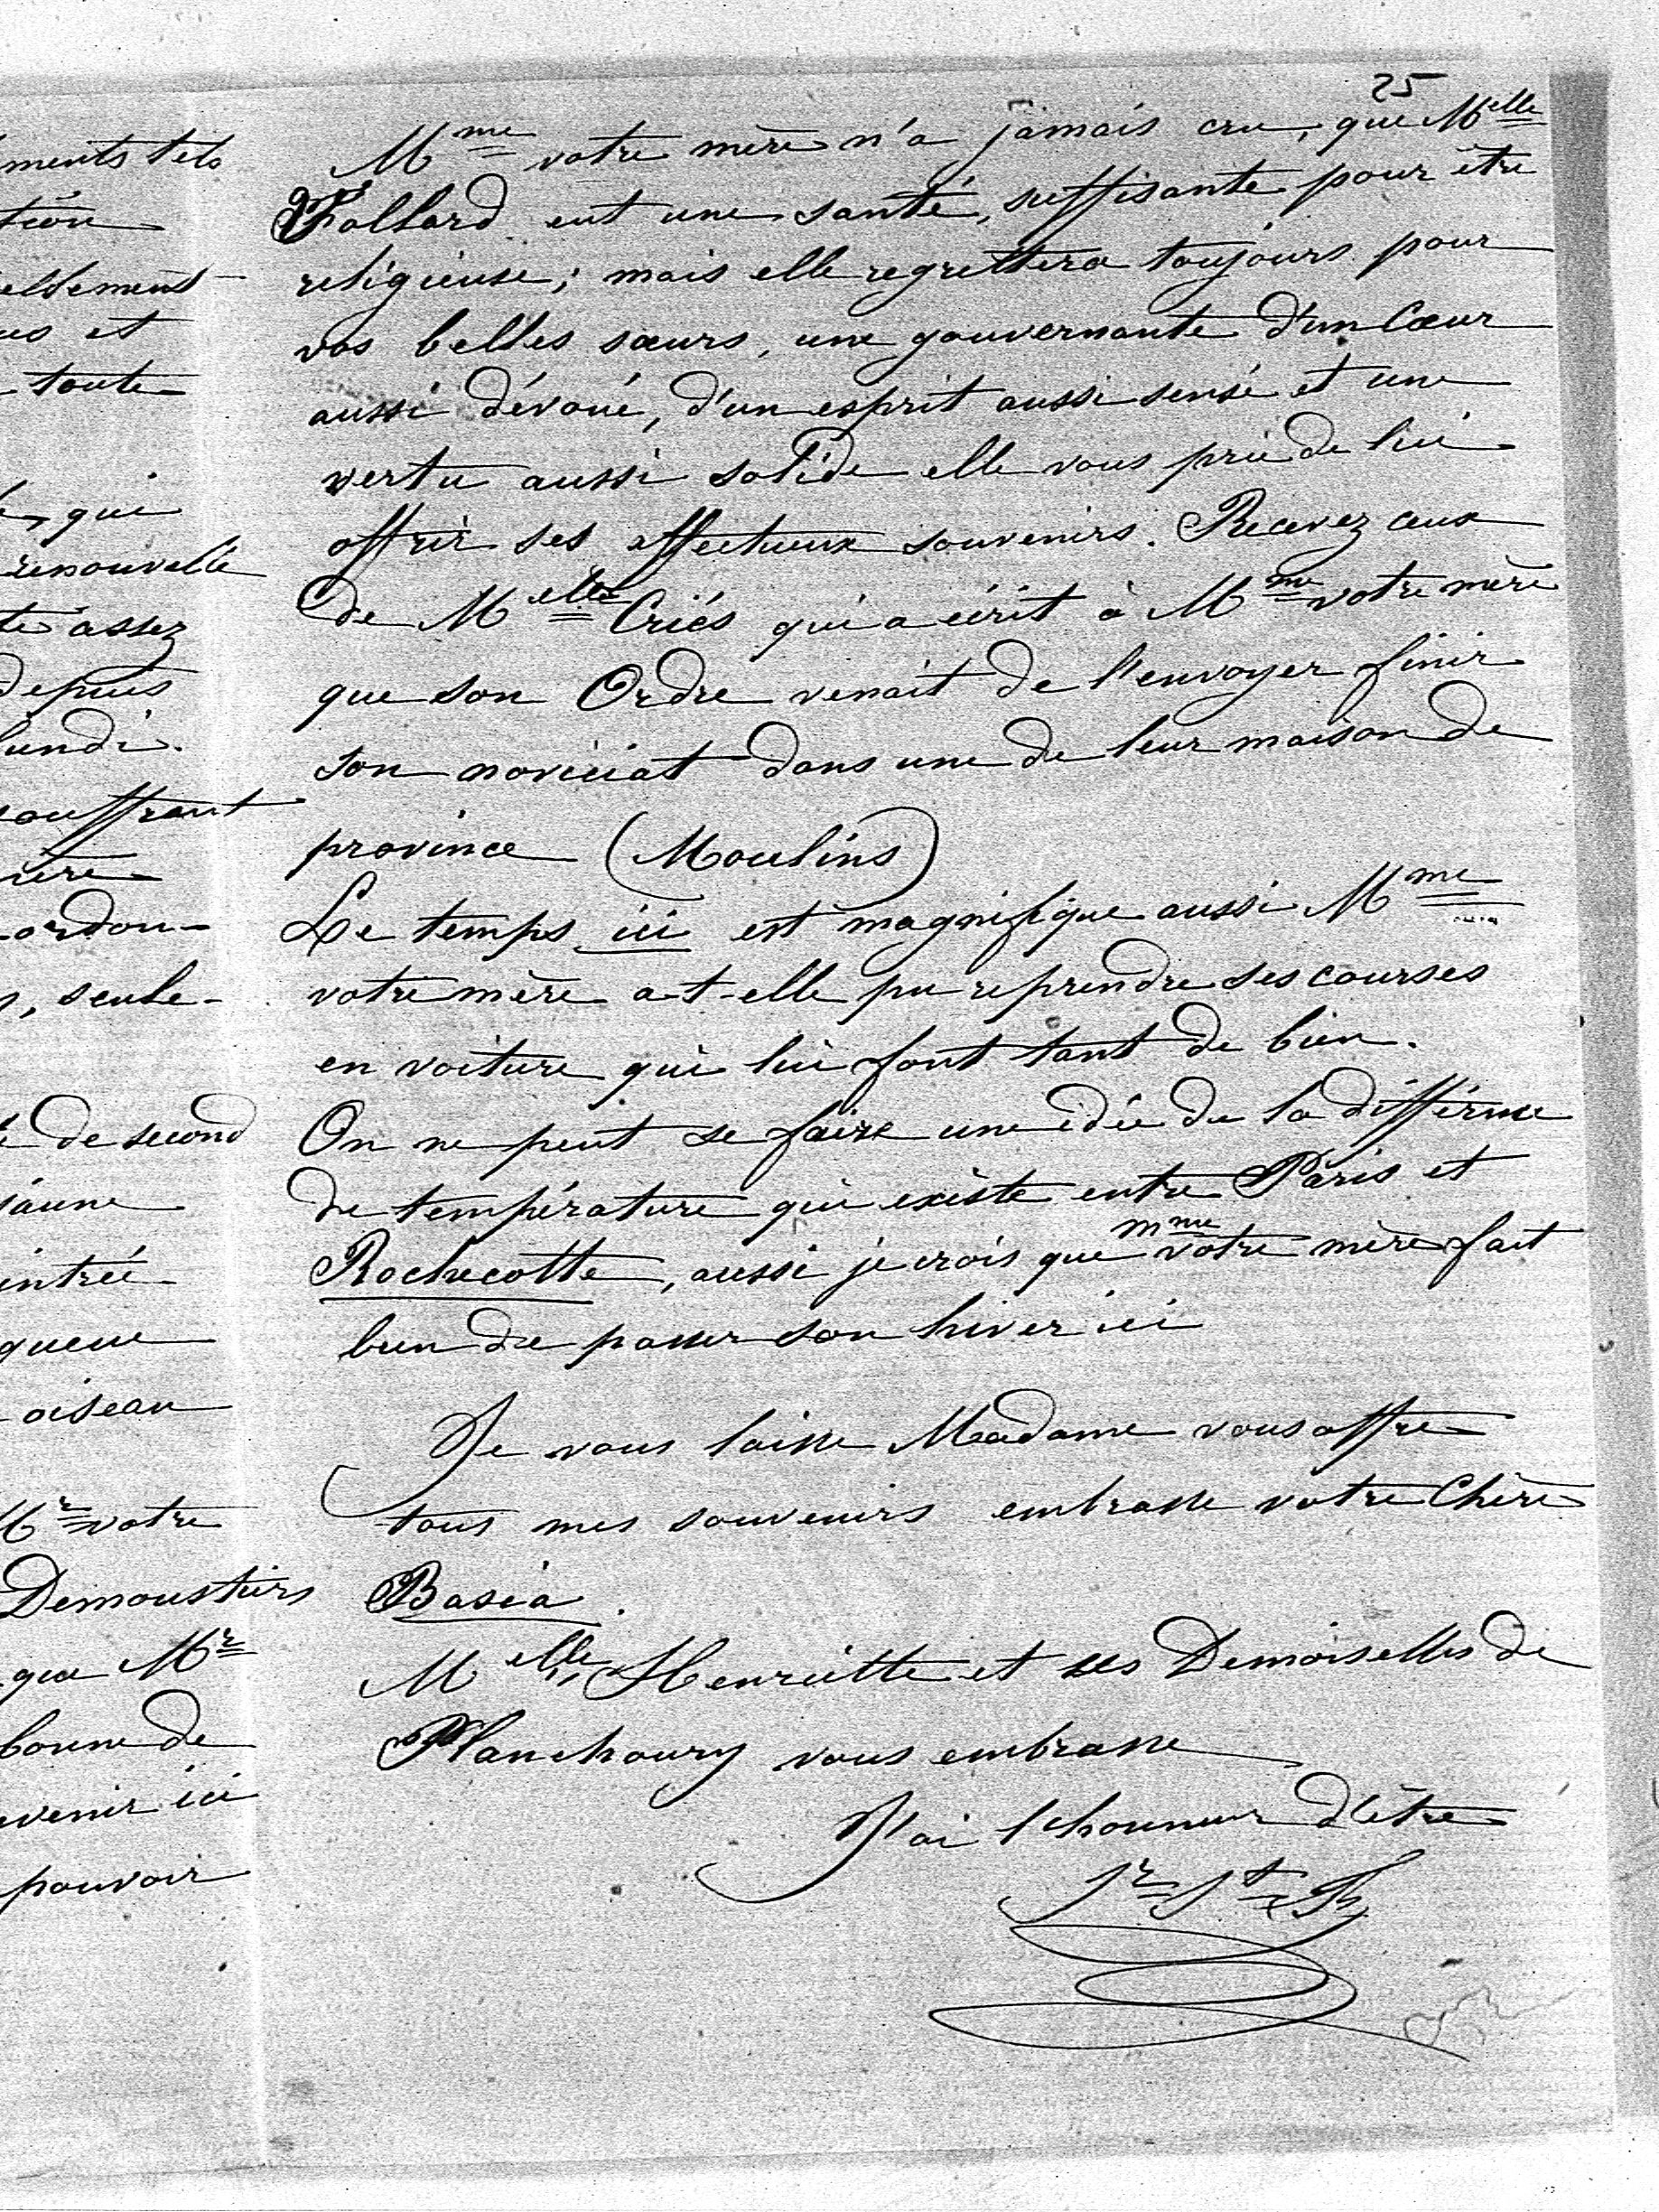 25
Mme votre mère n'a jamais cru, que Melle
Follard eut une santé, suffisante pour être
religieuse; mais elle regrettera toujours pour
vos belles sœurs, une gouvernante d'un Cœur
aussi dévoué, d'un esprit aussi sensé et une
vertu aussi solide elle vous prie de lui
offrir ses affectueux souvenirs. Recevez ceux
de Melle Criés qui a écrit à Mme votre mère
que son Ordre venait de l'envoyer finir
son noviciat dans une de leur maison de
province (Moulins)
Le temps ici est magnifique aussi Mme
votre mère a-t-elle pu reprendre ses courses
en voiture qui lui font tant de bien.
On ne peut se faire une idée de la différence
de température qui existe entre Paris et
Rochecotte, aussi je crois que mme votre mère fait
bien de passer son hiver ici
Je vous laisse Madame vous offre
tous mes souvenirs embrasse votre Chère
Basia.
Melle Henriette et ses Demoiselles de
Planchoury vous embrasse
J'ai l'honneur d'être
ments tels
tion
ellement
us et
toute
qui
renouvelle
te assez
depuis
lundi.
souffrant
ordon-
, seule-
de second
jaune
intrée
queue
oiseau
Mr votre
Demoustiers
que Mr
bonne de
evenir ici
pouvoir